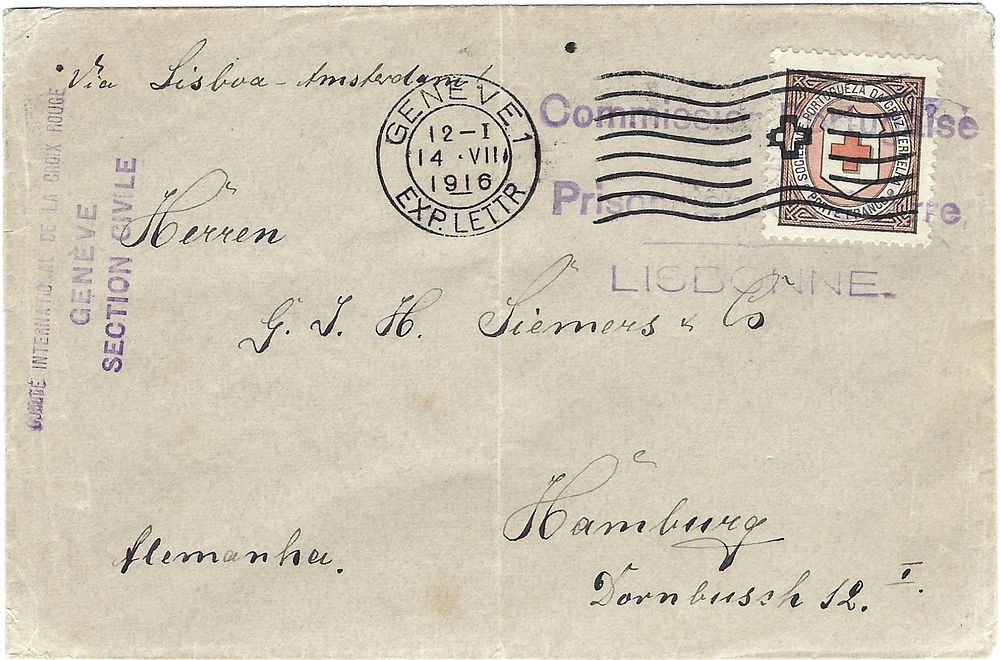 Via Lisboa - Amsterdam!
GENÈVE 1
12-I
14 · VII
1916
EXP. LETTR
Commission Portugaise
Prisonniers Guerre
LISBONNE.
SOCIEDADE PORTUGUEZA DA CRUZ VERMELHA
PORTE FRANCO
COMITÉ INTERNATIONAL DE LA CROIX ROUGE
GENÈVE
SECTION CIVILE
Herren
G. J. H. Siemers & Co
Hamburg
Alemanha.
Dornbusch 12. I.